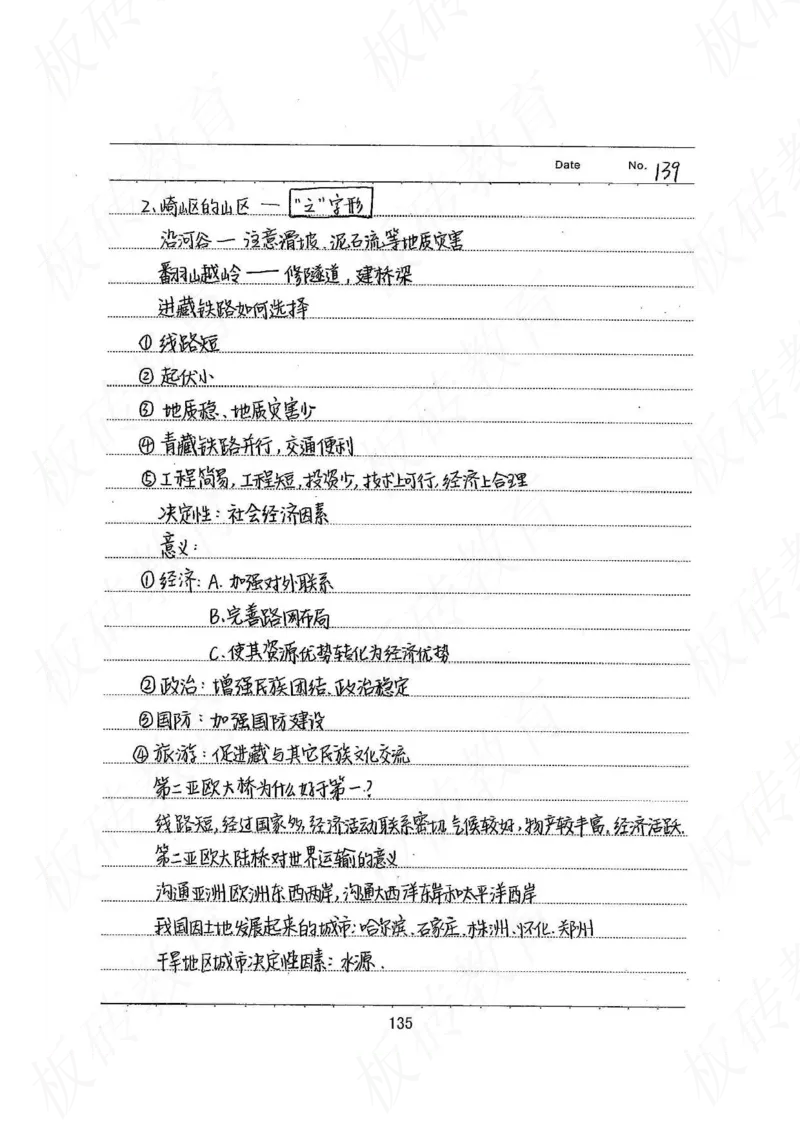 Date No. 139
2、崎岖的山区 — "之"字形
沿河谷 — 注意滑坡、泥石流等地质灾害
翻山越岭 — 修隧道，建桥梁
进藏铁路如何选择
① 线路短
② 起伏小
③ 地质稳、地质灾害少
④ 青藏铁路并行，交通便利
⑤ 工程简易，工程短，投资少，技术上可行，经济上合理
决定性：社会经济因素
意义：
① 经济：A. 加强对外联系
B. 完善路网布局
C. 使其资源优势转化为经济优势
② 政治：增强民族团结、政治稳定
③ 国防：加强国防建设
④ 旅游：促进藏与其它民族文化交流
第二亚欧大桥为什么好于第一？
线路短，经过国家多，经济活动联系密切，气候较好，物产较丰富，经济活跃.
第二亚欧大陆桥对世界运输的意义
沟通亚洲欧洲东西两岸，沟通大西洋东岸和太平洋西岸
我国因土地发展起来的城市：哈尔滨、石家庄、株洲、怀化、郑州
干旱地区城市决定性因素：水源.
135
板砖教育